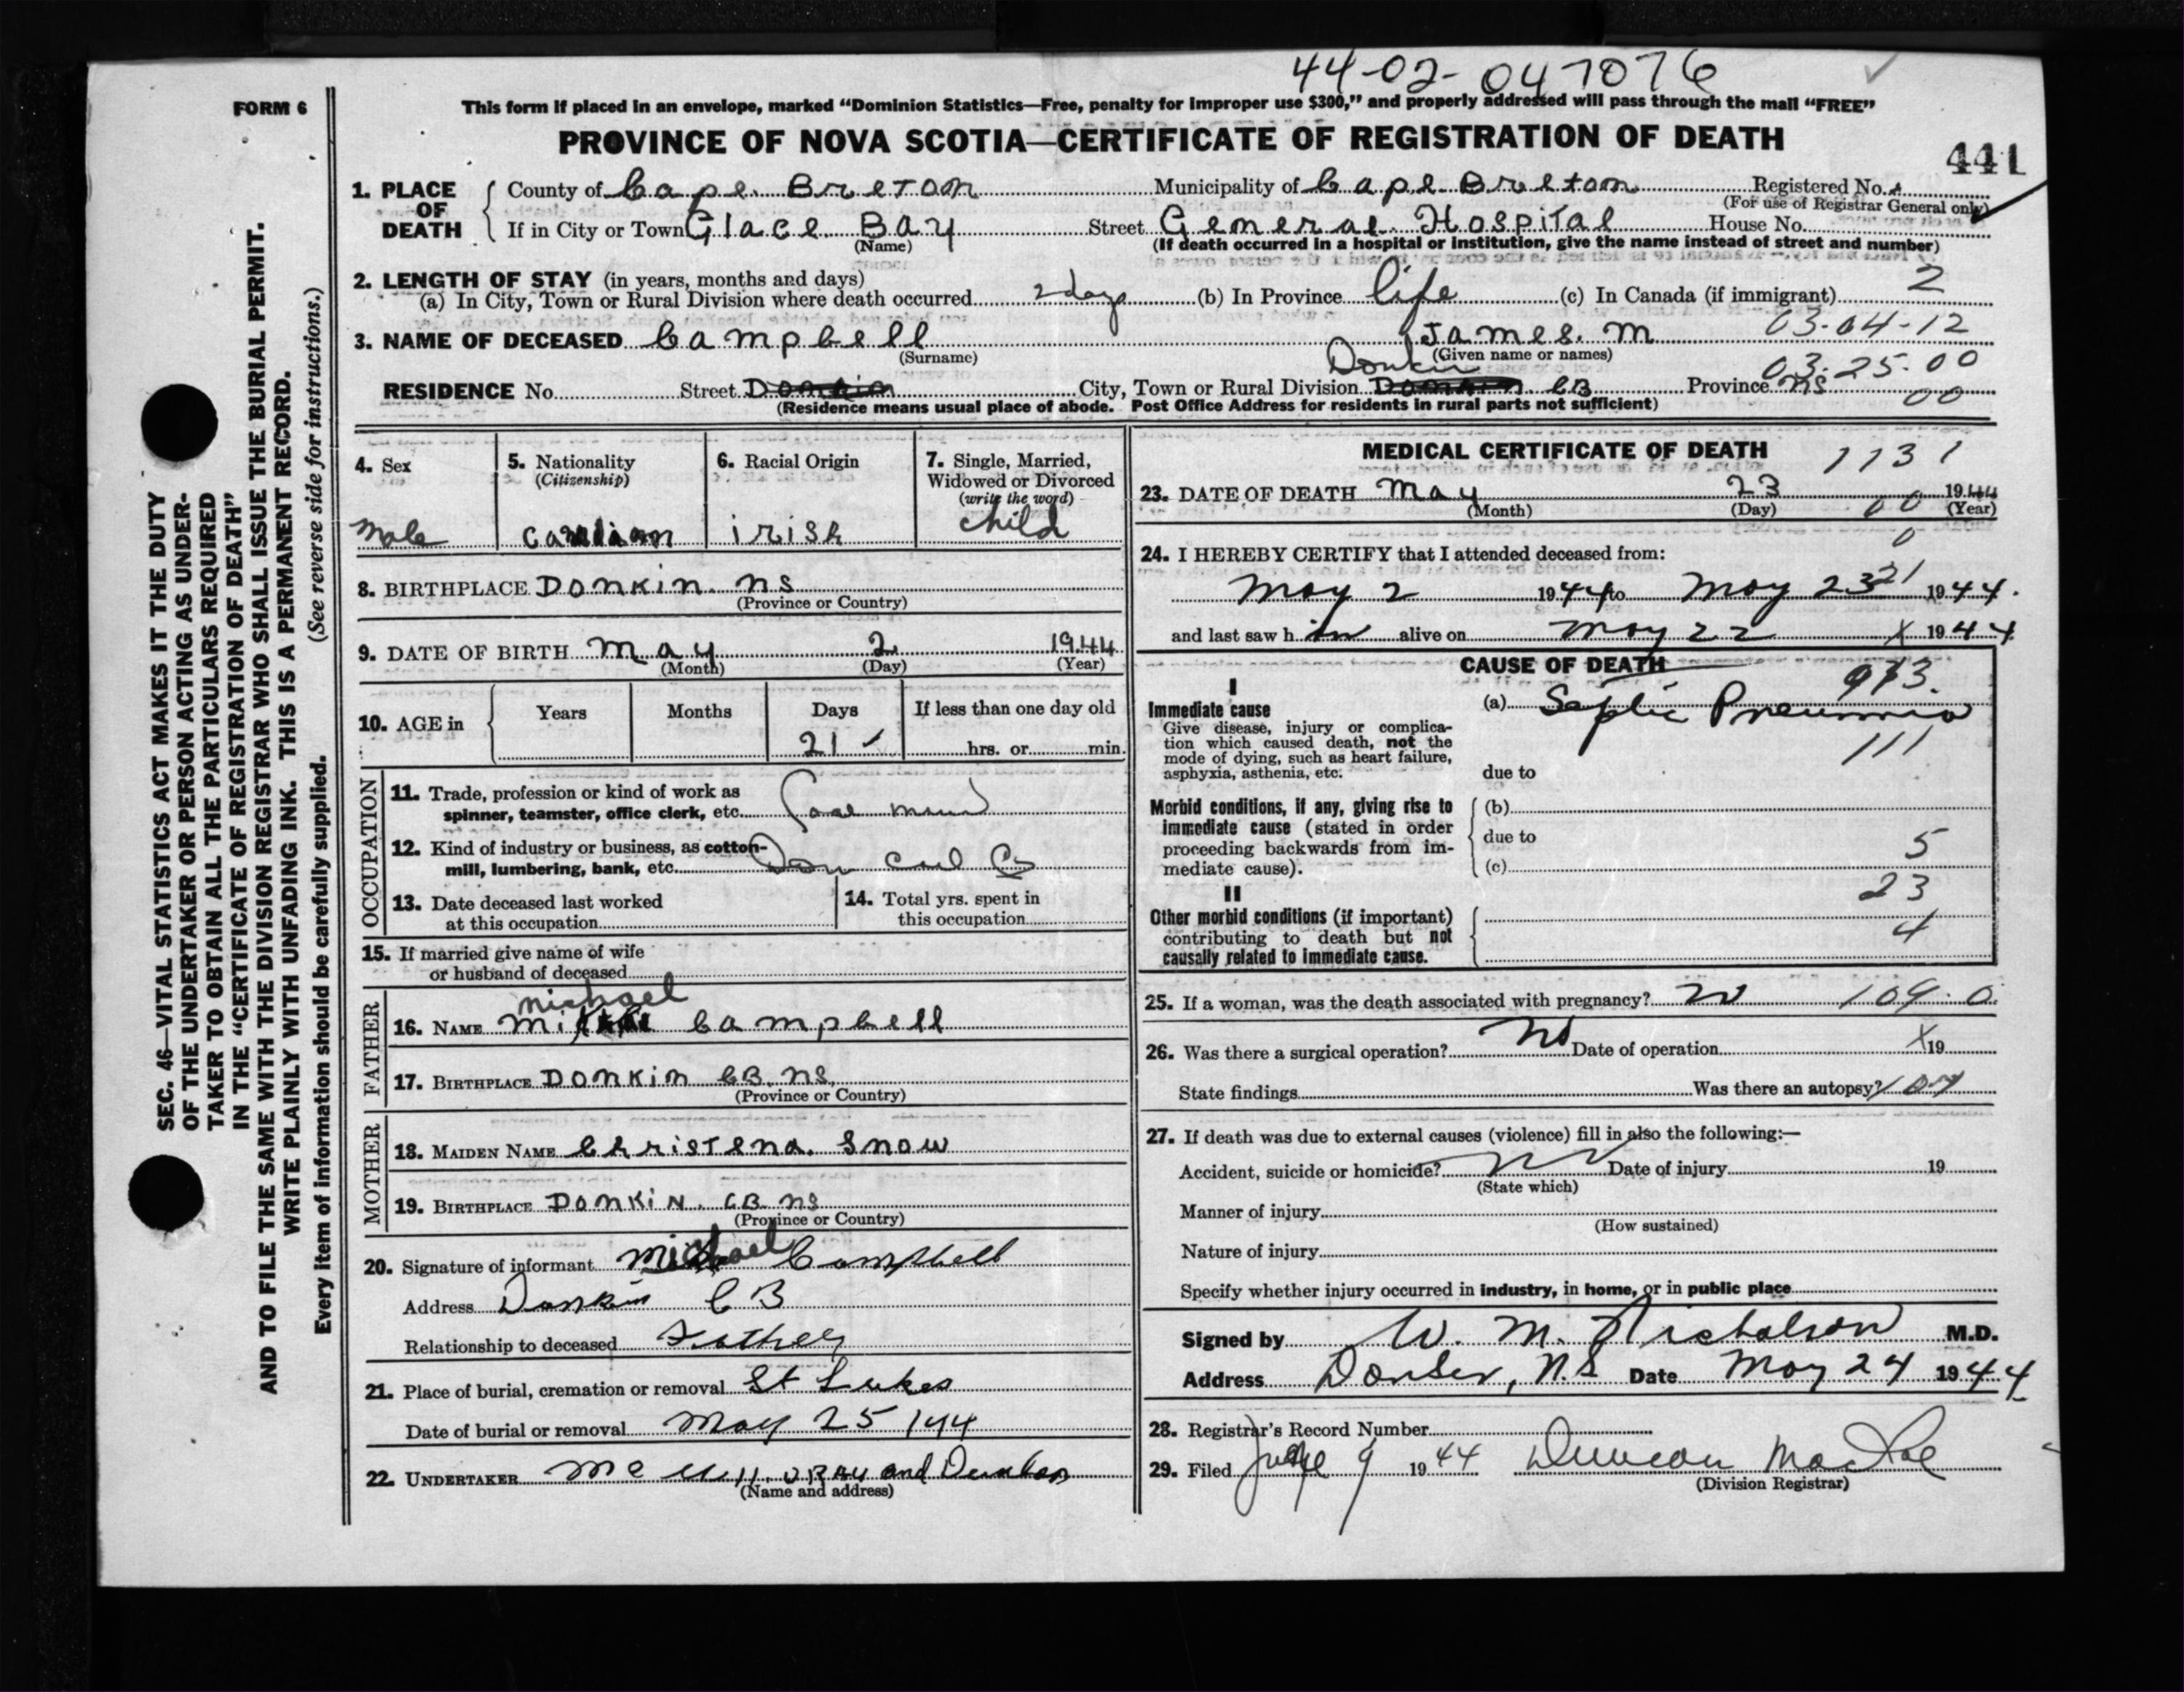 44-02-047076
FORM 6
This form if placed in an envelope, marked “Dominion Statistics—Free, penalty for improper use $300,” and properly addressed will pass through the mail “FREE”
PROVINCE OF NOVA SCOTIA—CERTIFICATE OF REGISTRATION OF DEATH
441
1. PLACE OF DEATH
County of Cape Breton Municipality of Cape Breton Registered No.
(For use of Registrar General only)
If in City or Town Glace Bay Street General Hospital House No.
(Name) (If death occurred in a hospital or institution, give the name instead of street and number)
2. LENGTH OF STAY (in years, months and days) 2
(a) In City, Town or Rural Division where death occurred 2 days (b) In Province life (c) In Canada (if immigrant)
03-04-12
3. NAME OF DECEASED Campbell James. M
(Surname) (Given name or names)
Donkin 03.25.00
RESIDENCE No. Street City, Town or Rural Division CB Province NS
00
(Residence means usual place of abode. Post Office Address for residents in rural parts not sufficient)
4. Sex
male
5. Nationality
(Citizenship)
Canadian
6. Racial Origin
irish
7. Single, Married,
Widowed or Divorced
(write the word)
child
8. BIRTHPLACE Donkin. NS
(Province or Country)
9. DATE OF BIRTH May 2 1944
(Month) (Day) (Year)
10. AGE in
Years Months Days If less than one day old
21 ✓ hrs. or min.
OCCUPATION
11. Trade, profession or kind of work as
spinner, teamster, office clerk, etc.
12. Kind of industry or business, as cotton-
mill, lumbering, bank, etc. Dom Coal Co
13. Date deceased last worked
at this occupation
14. Total yrs. spent in
this occupation
15. If married give name of wife
or husband of deceased
FATHER
Michael
16. NAME Campbell
17. BIRTHPLACE Donkin CB. NS.
(Province or Country)
MOTHER
18. MAIDEN NAME Christena. Snow
19. BIRTHPLACE Donkin. CB NS
(Province or Country)
20. Signature of informant Michael Campbell
Address Donkin CB
Relationship to deceased Father
21. Place of burial, cremation or removal St Lukes
Date of burial or removal May 25 / 44
22. UNDERTAKER and
(Name and address)
MEDICAL CERTIFICATE OF DEATH
1131
23. DATE OF DEATH May 23 1944
(Month) (Day) 00 (Year)
0
24. I HEREBY CERTIFY that I attended deceased from:
21
May 2 1944 to May 23 1944.
and last saw him alive on May 22 X 1944
CAUSE OF DEATH
I
Immediate cause
Give disease, injury or complica-
tion which caused death, not the
mode of dying, such as heart failure,
asphyxia, asthenia, etc.
(a) Septic Pneumonia
111
due to
Morbid conditions, if any, giving rise to
immediate cause (stated in order
proceeding backwards from im-
mediate cause).
(b)
due to
5
(c)
23
II
Other morbid conditions (if important)
contributing to death but not
causally related to immediate cause.
4
25. If a woman, was the death associated with pregnancy? 109.0
26. Was there a surgical operation? No Date of operation X 19
State findings Was there an autopsy? 107
27. If death was due to external causes (violence) fill in also the following:—
Accident, suicide or homicide? Date of injury 19
(State which)
Manner of injury
(How sustained)
Nature of injury
Specify whether injury occurred in industry, in home, or in public place
Signed by W. M. Nicholson M.D.
Address N.S Date May 24 1944
28. Registrar's Record Number
29. Filed 9 1944 Duncan
(Division Registrar)
SEC. 46—VITAL STATISTICS ACT MAKES IT THE DUTY
OF THE UNDERTAKER OR PERSON ACTING AS UNDER-
TAKER TO OBTAIN ALL THE PARTICULARS REQUIRED
IN THE “CERTIFICATE OF REGISTRATION OF DEATH”
AND TO FILE THE SAME WITH THE DIVISION REGISTRAR WHO SHALL ISSUE THE BURIAL PERMIT.
WRITE PLAINLY WITH UNFADING INK. THIS IS A PERMANENT RECORD.
Every item of information should be carefully supplied. (See reverse side for instructions.)